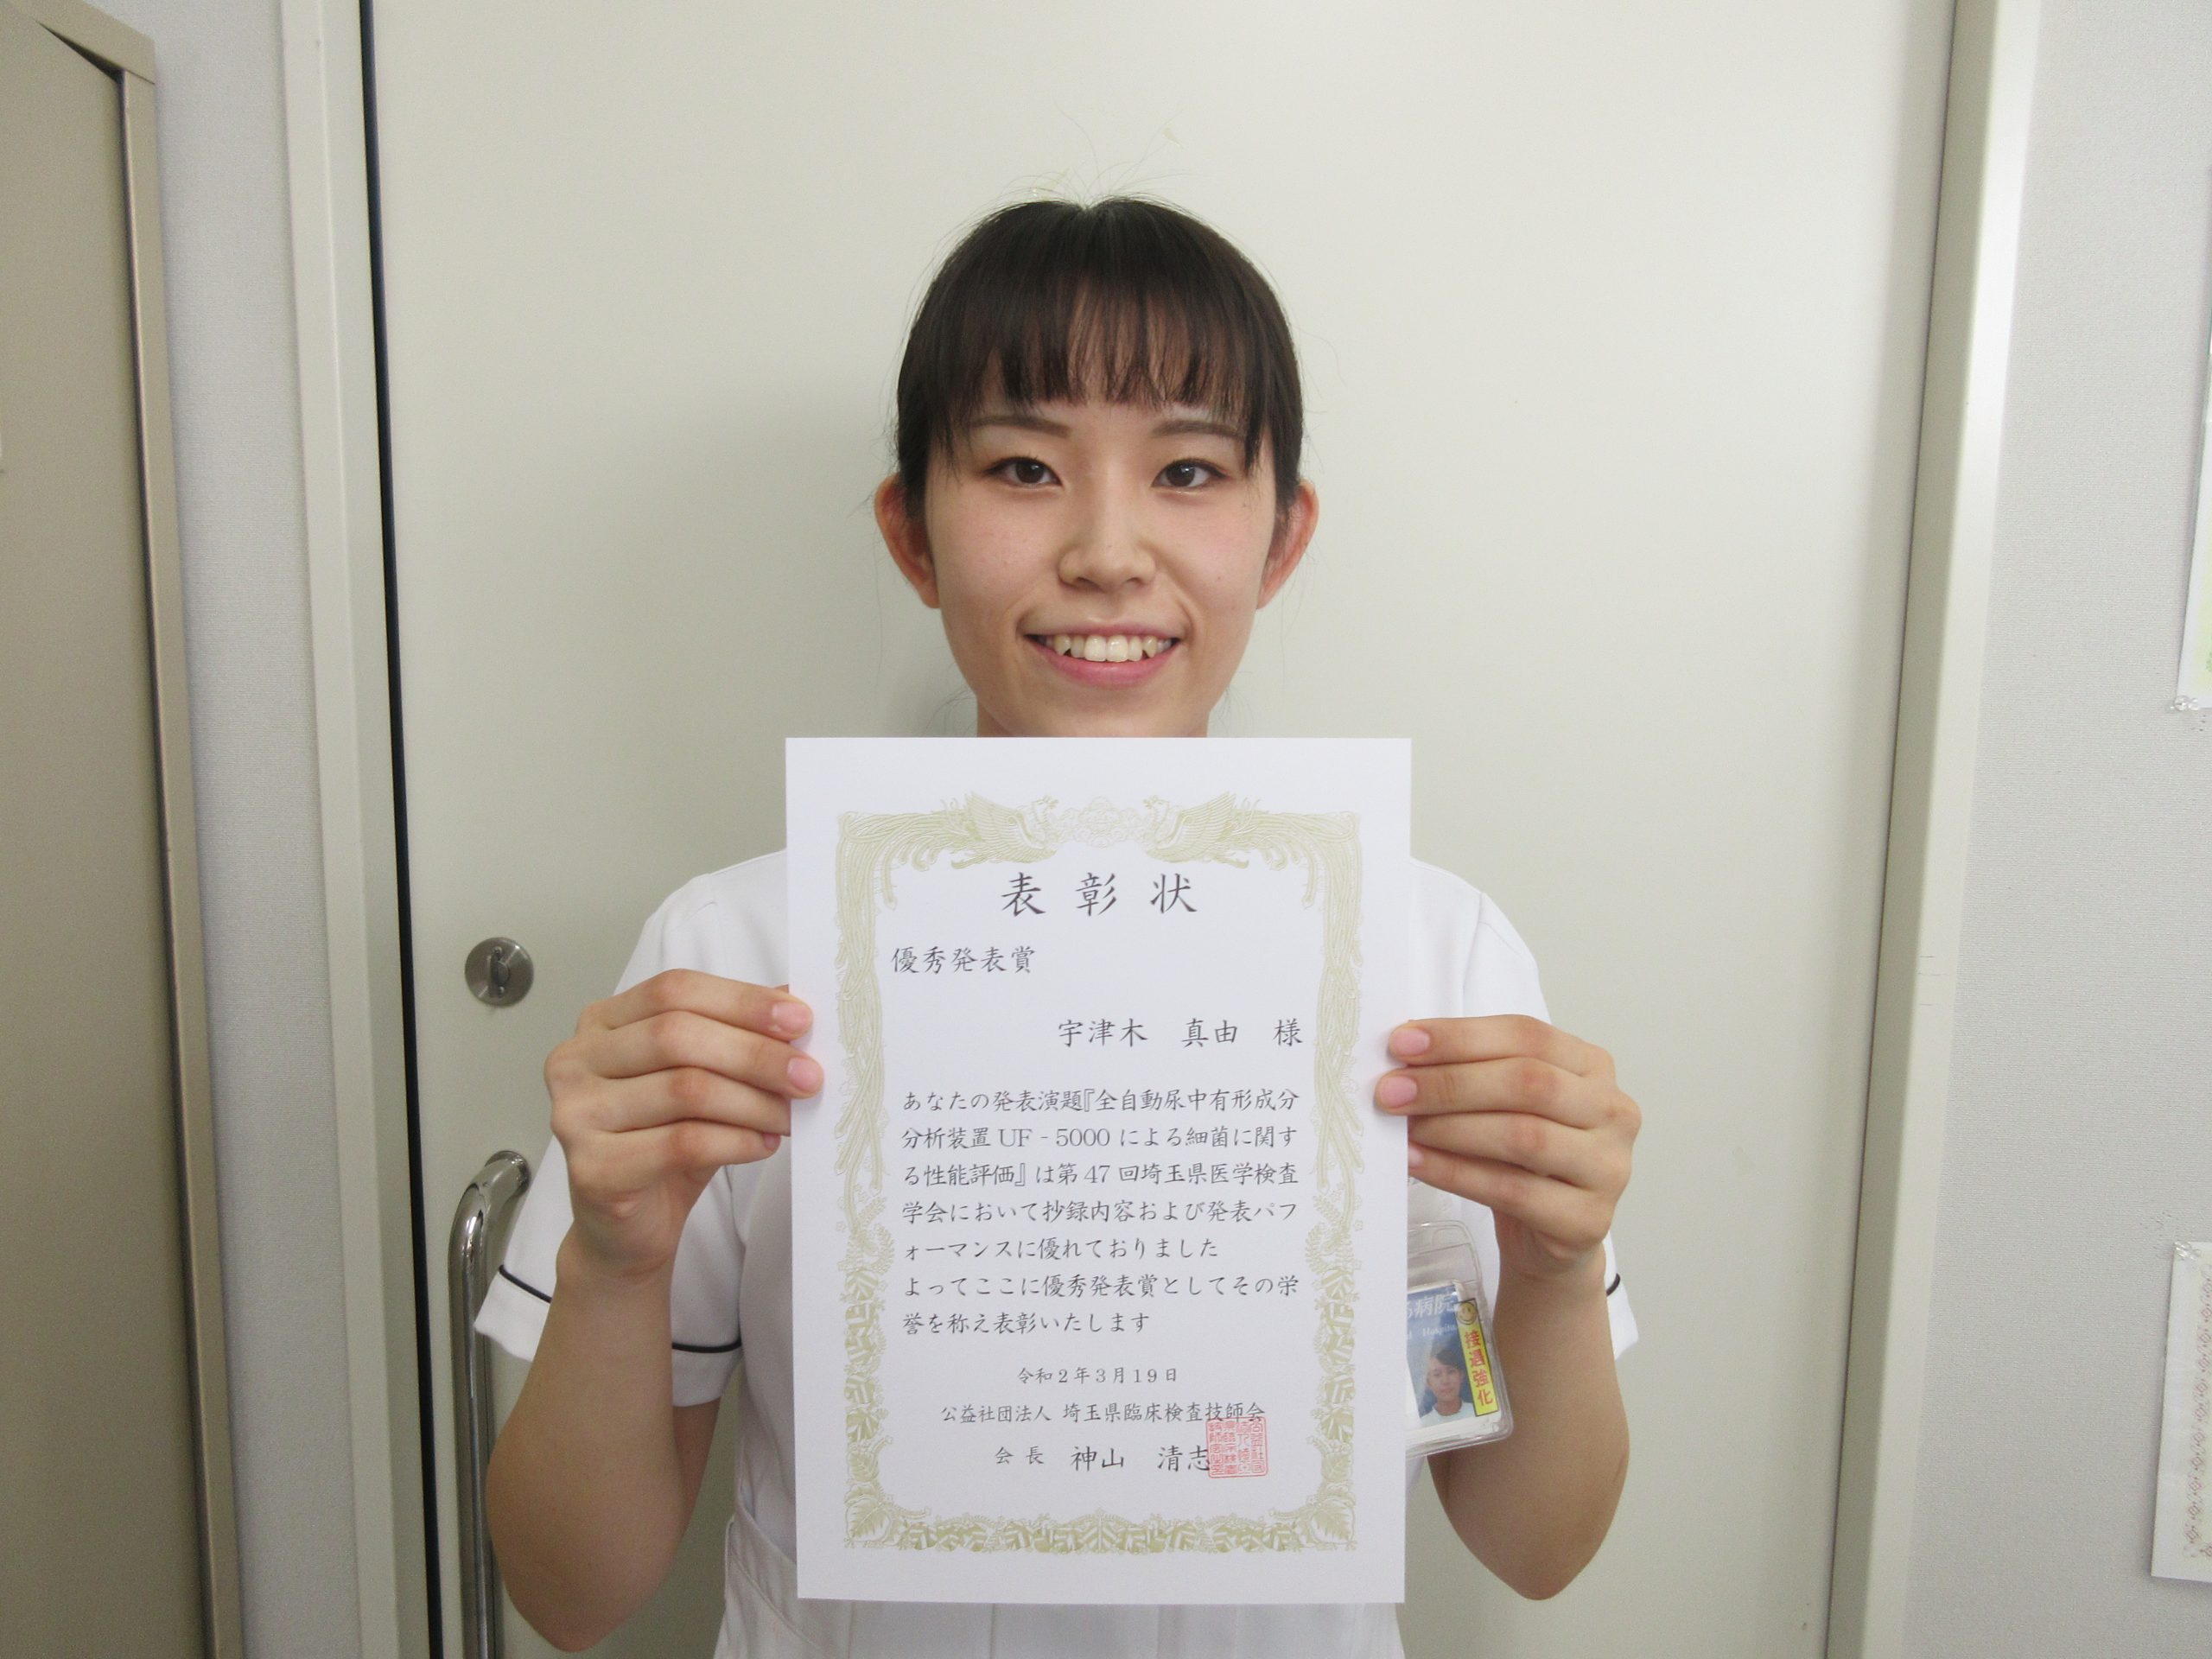 表彰状
優秀発表賞
宇津木 真由 様
あなたの発表演題『全自動尿中有形成分
分析装置 UF‐5000 による細菌に関す
る性能評価』は第 47 回埼玉県医学検査
学会において抄録内容および発表パフ
ォーマンスに優れておりました
よってここに優秀発表賞としてその栄
誉を称え表彰いたします
令和2年3月19日
公益社団法人 埼玉県臨床検査技師会
会長 神山 清志
病院
接遇強化